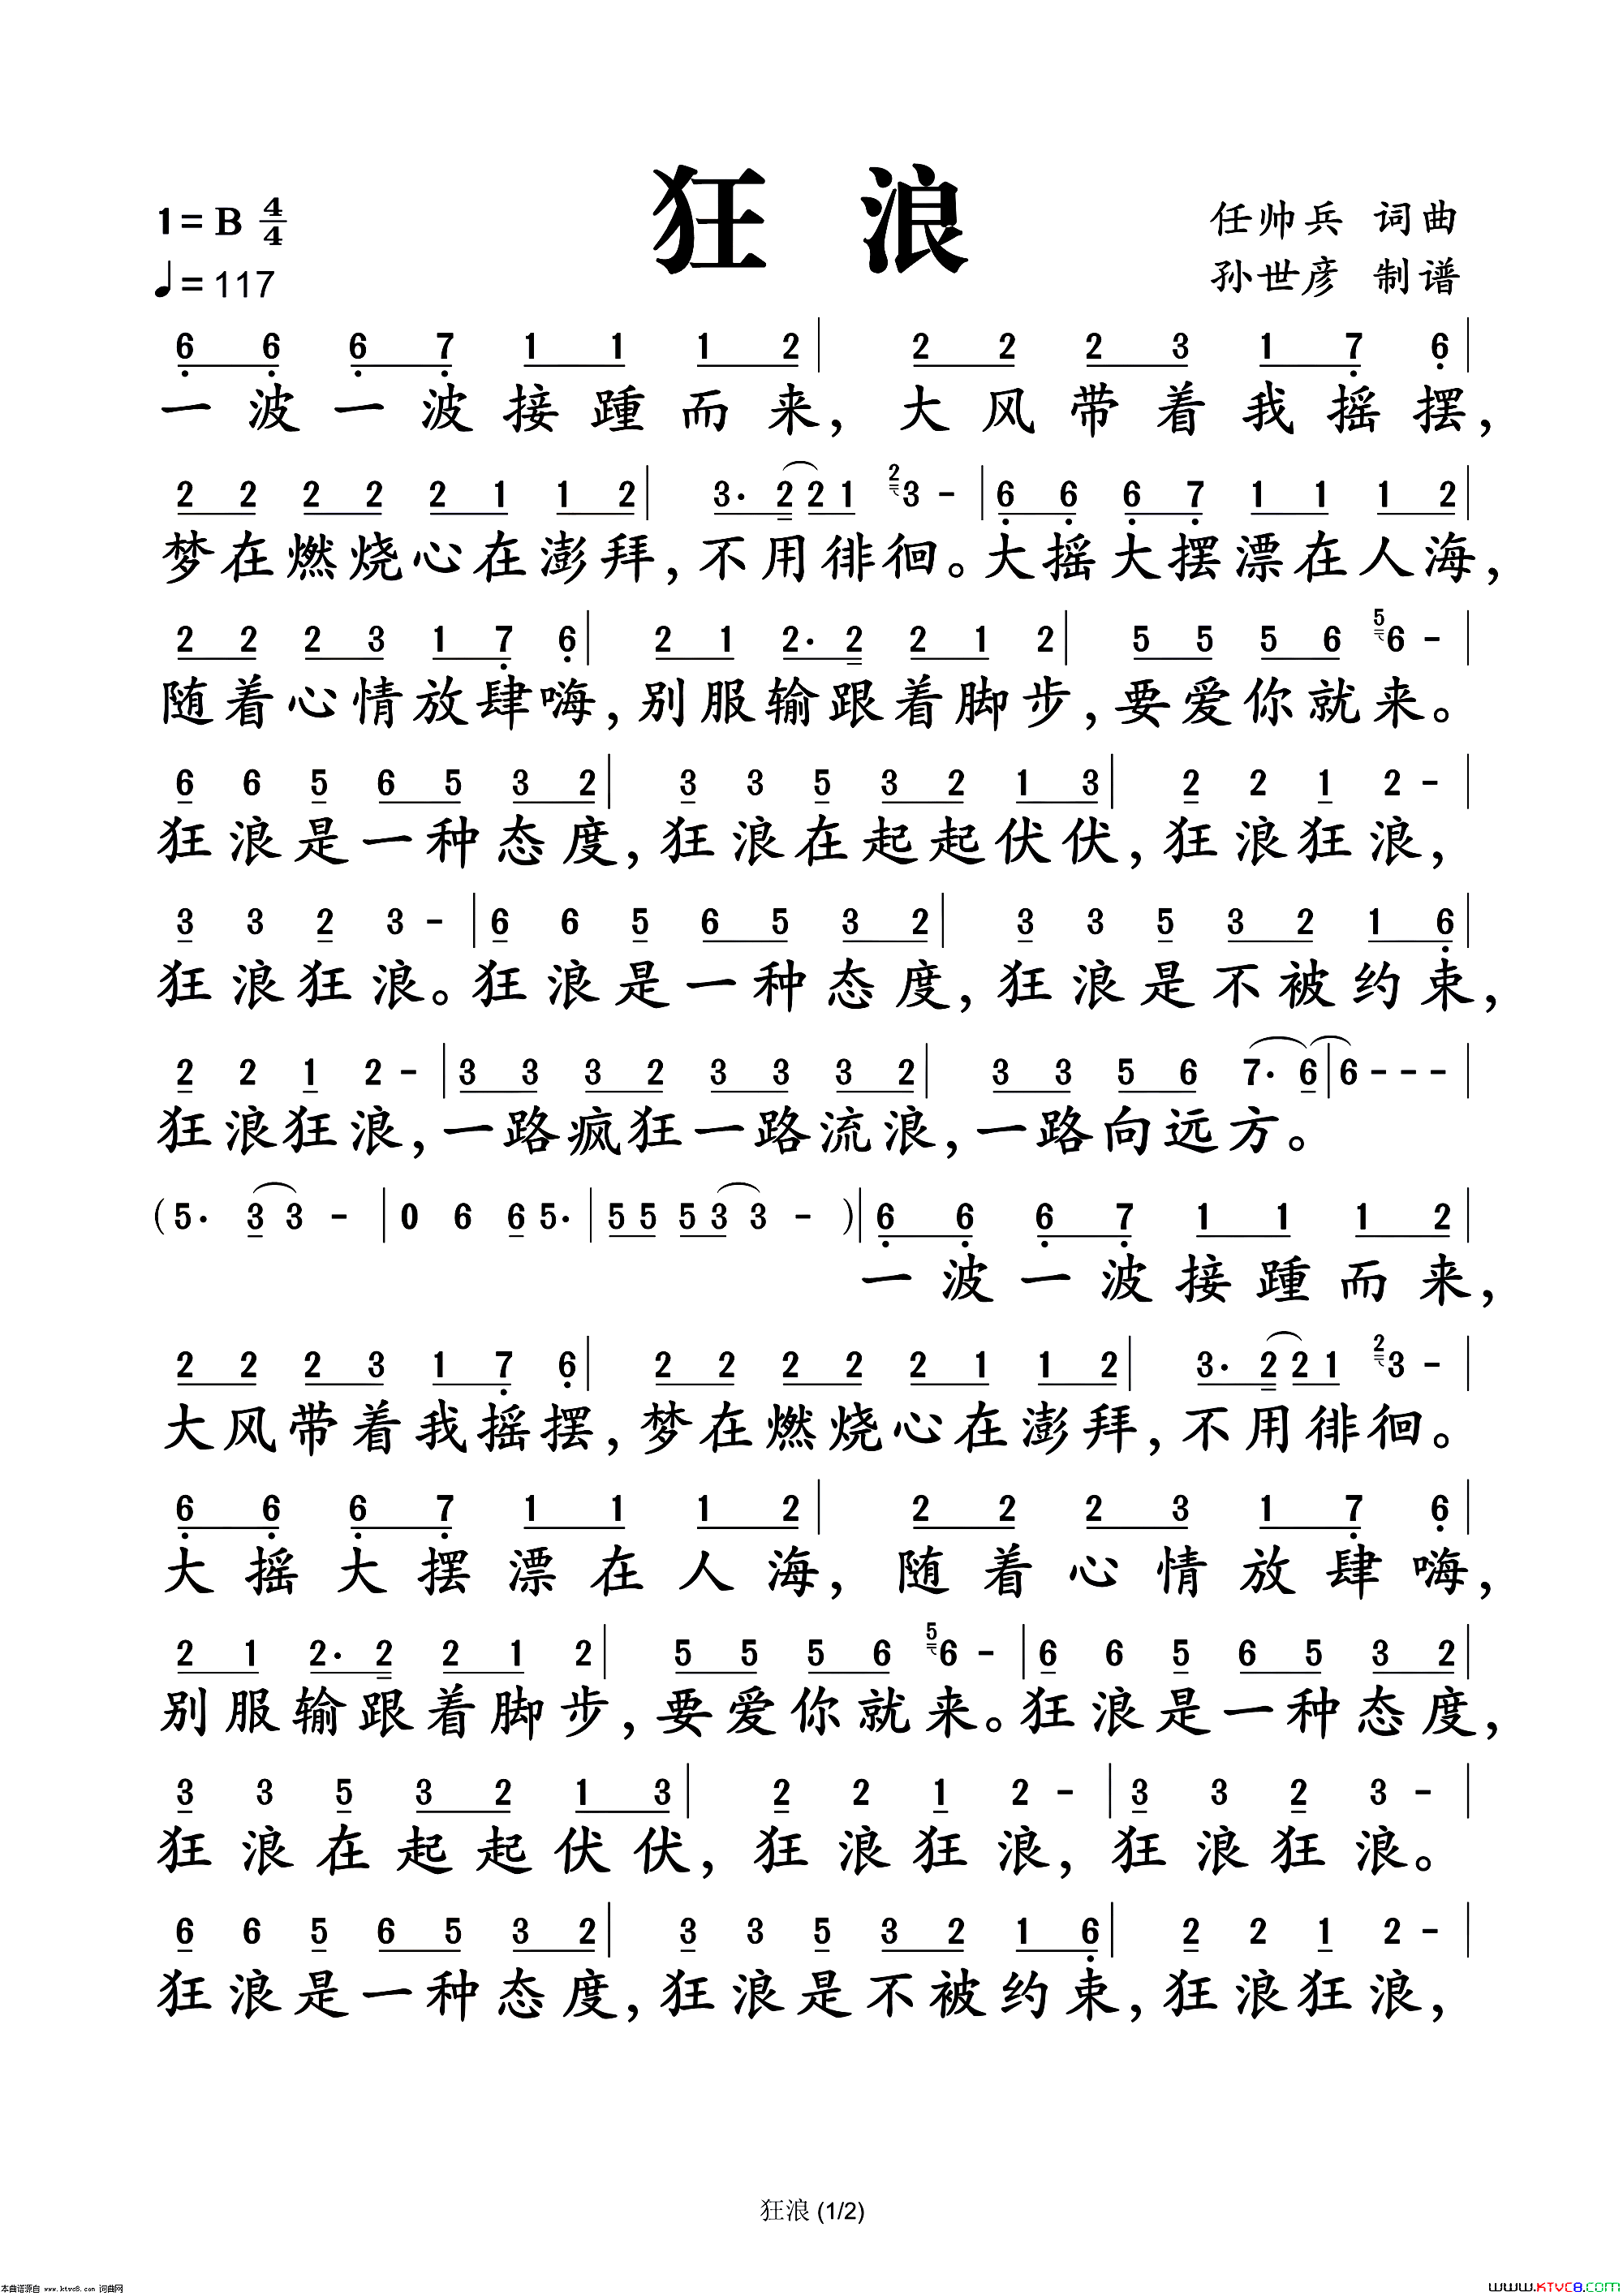 狂 浪
1=B 4/4
♩=117
任帅兵 词曲
孙世彦 制谱
6 6 6 7 1 1 1 2 | 2 2 2 3 1 7 6 |
一波一波接踵而来，大风带着我摇摆，
2 2 2 2 2 1 1 2 | 3· 2 2 1 2 3 - | 6 6 6 7 1 1 1 2 |
梦在燃烧心在澎拜，不用徘徊。大摇大摆漂在人海，
2 2 2 3 1 7 6 | 2 1 2· 2 2 1 2 | 5 5 5 6 5 6 - |
随着心情放肆嗨，别服输跟着脚步，要爱你就来。
6 6 5 6 5 3 2 | 3 3 5 3 2 1 3 | 2 2 1 2 - |
狂浪是一种态度，狂浪在起起伏伏，狂浪狂浪，
3 3 2 3 - | 6 6 5 6 5 3 2 | 3 3 5 3 2 1 6 |
狂浪狂浪。狂浪是一种态度，狂浪是不被约束，
2 2 1 2 - | 3 3 3 2 3 3 3 2 | 3 3 5 6 7· 6 | 6 - - - |
狂浪狂浪，一路疯狂一路流浪，一路向远方。
( 5· 3 3 - | 0 6 6 5· | 5 5 5 3 3 - ) | 6 6 6 7 1 1 1 2 |
一波一波接踵而来，
2 2 2 3 1 7 6 | 2 2 2 2 2 1 1 2 | 3· 2 2 1 2 3 - |
大风带着我摇摆，梦在燃烧心在澎拜，不用徘徊。
6 6 6 7 1 1 1 2 | 2 2 2 3 1 7 6 |
大摇大摆漂在人海，随着心情放肆嗨，
2 1 2· 2 2 1 2 | 5 5 5 6 5 6 - | 6 6 5 6 5 3 2 |
别服输跟着脚步，要爱你就来。狂浪是一种态度，
3 3 5 3 2 1 3 | 2 2 1 2 - | 3 3 2 3 - |
狂浪在起起伏伏，狂浪狂浪，狂浪狂浪。
6 6 5 6 5 3 2 | 3 3 5 3 2 1 6 | 2 2 1 2 - |
狂浪是一种态度，狂浪是不被约束，狂浪狂浪，
狂浪 (1/2)
本曲谱源自 www.ktvc8.com 词曲网
www.KTVC8.COM